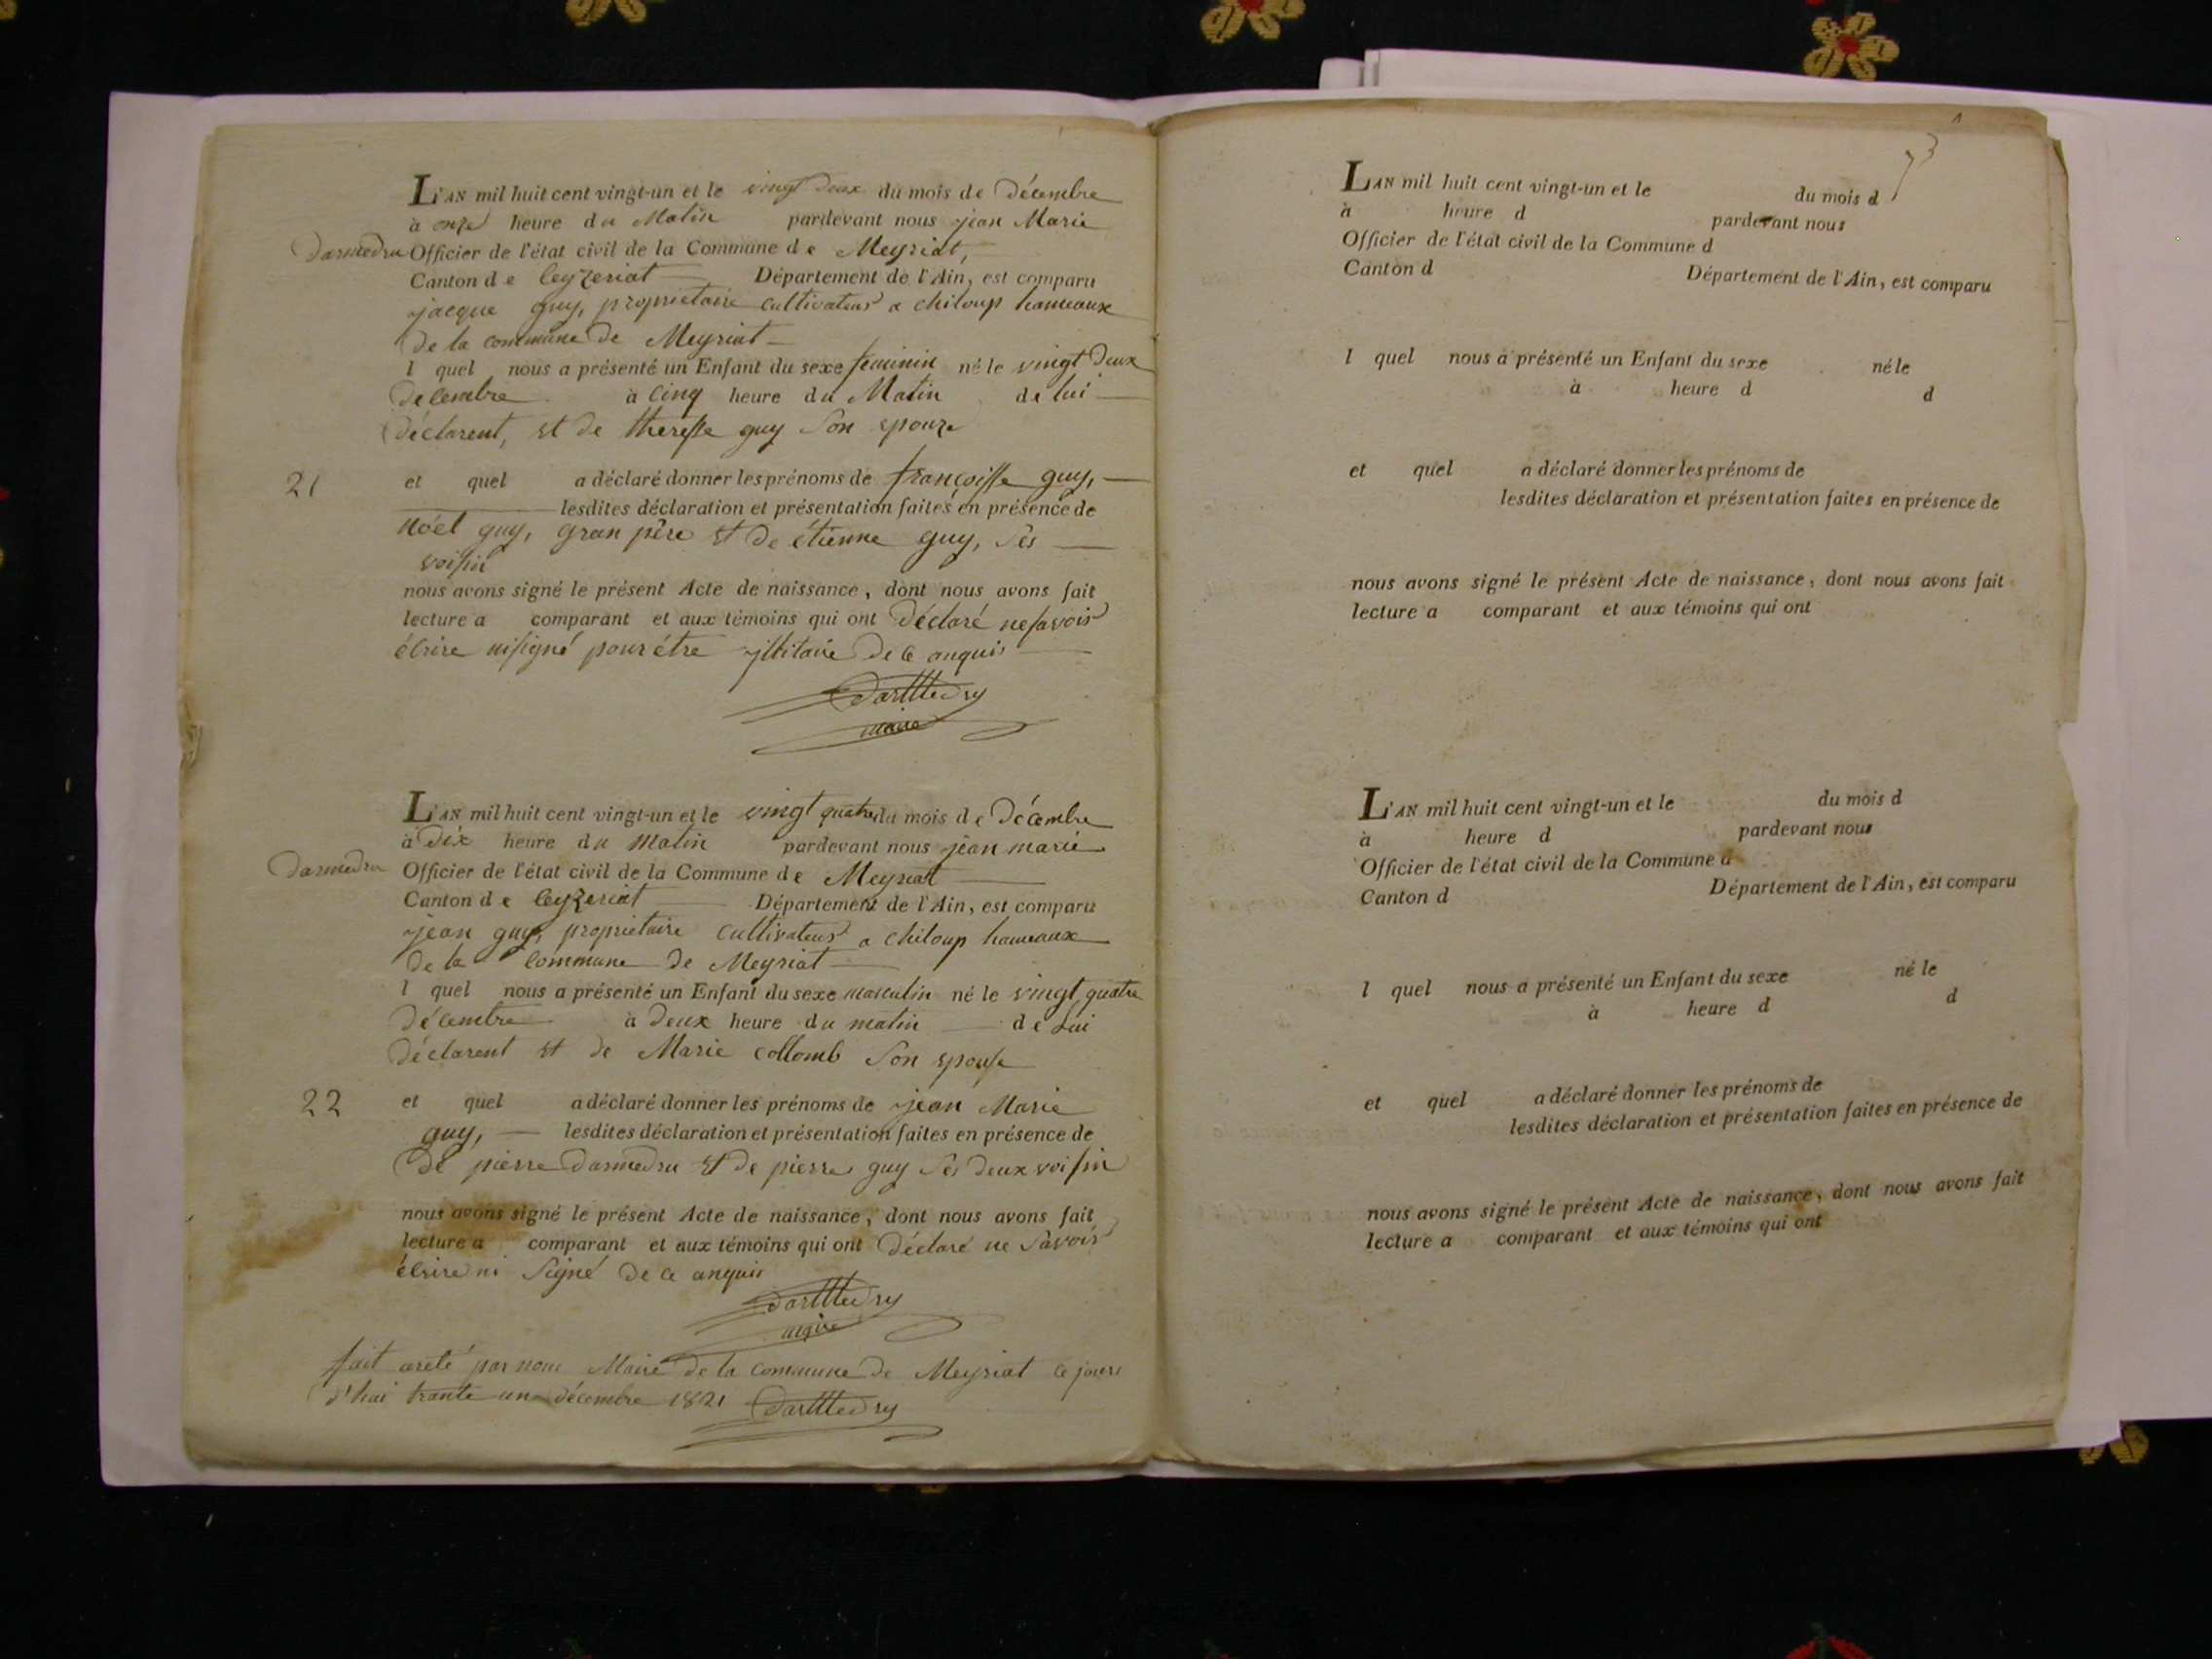 L'AN mil huit cent vingt-un et le vingt Deux du mois de Décembre
à onze heure du Matin pardevant nous jean Marie
Darmedru Officier de l'état civil de la Commune de Meyriat,
Canton de Ceyzeriat Département de l'Ain, est comparu
jacque guy, propriétaire cultivateur a chiloup hameaux
De la commune De Meyriat
l quel nous a présenté un Enfant du sexe feminin né le vingt Deux
Decembre à Cinq heure du Matin de lui
Déclarent, et De theresse guy Son epouze
21 et quel a déclaré donner les prénoms de françoisse guy,
lesdites déclaration et présentation faites en présence de
Noël guy, gran père et De étienne guy, Ses
voisin
nous avons signé le présent Acte de naissance, dont nous avons fait
lecture a comparant et aux témoins qui ont Déclaré ne savoir
écrire ni signé pour être illitaire De ce anquis
Darmedru
maire
L'AN mil huit cent vingt-un et le vingt quatre du mois de Décembre
à Dix heure du Matin pardevant nous jean marie
Darmedru Officier de l'état civil de la Commune de Meyriat
Canton de Ceyzeriat Département de l'Ain, est comparu
jean guy, propriétaire cultivateur a chiloup hameaux
De la Commune De Meyriat
l quel nous a présenté un Enfant du sexe masculin né le vingt quatre
Décembre à Deux heure du matin de Lui
Déclarent et De Marie Collomb Son epouse
22 et quel a déclaré donner les prénoms de jean Marie
guy, lesdites déclaration et présentation faites en présence de
De pierre Darmedru et De pierre guy Ses Deux voisin
nous avons signé le présent Acte de naissance, dont nous avons fait
lecture a comparant et aux témoins qui ont Déclaré ne Savoir
écrire ni Signé De ce anquis
Darmedru
maire
fait areté par nous Maire De la commune De Meyriat ce jours
d'hui trante un décembre 1821 Darmedru
L'AN mil huit cent vingt-un et le du mois d
à heure d pardevant nous
Officier de l'état civil de la Commune d
Canton d Département de l'Ain, est comparu
l quel nous a présenté un Enfant du sexe né le
à heure d d
et quel a déclaré donner les prénoms de
lesdites déclaration et présentation faites en présence de
nous avons signé le présent Acte de naissance, dont nous avons fait
lecture a comparant et aux témoins qui ont
L'AN mil huit cent vingt-un et le du mois d
à heure d pardevant nous
Officier de l'état civil de la Commune d
Canton d Département de l'Ain, est comparu
l quel nous a présenté un Enfant du sexe né le
à heure d d
et quel a déclaré donner les prénoms de
lesdites déclaration et présentation faites en présence de
nous avons signé le présent Acte de naissance, dont nous avons fait
lecture a comparant et aux témoins qui ont